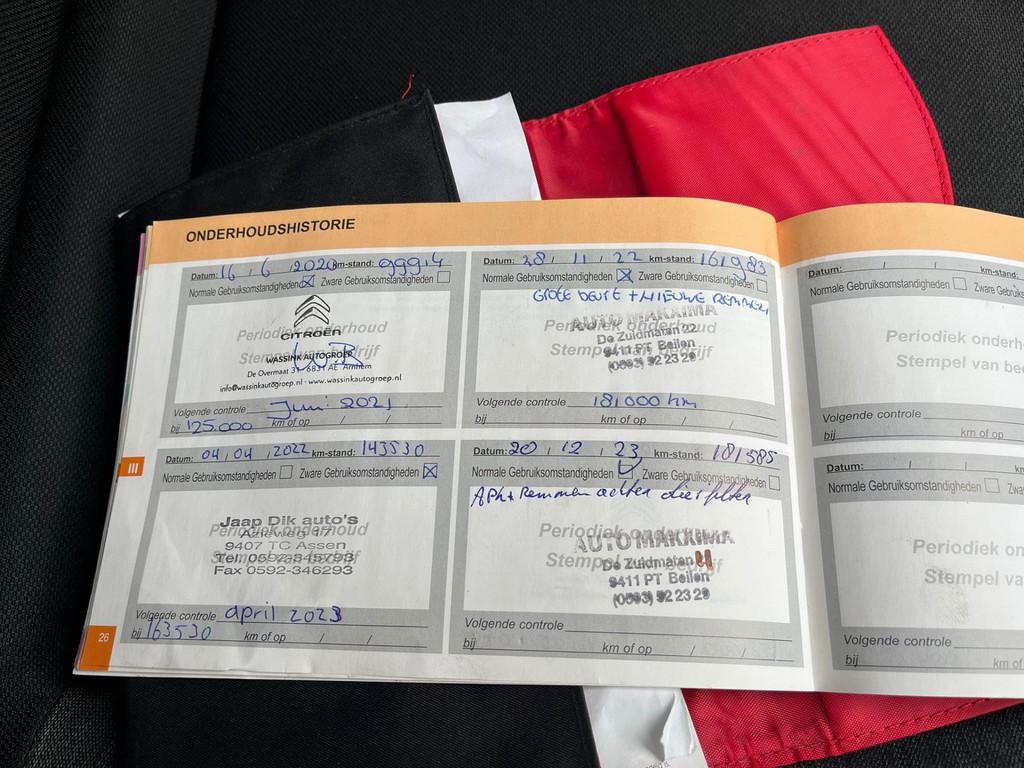 ONDERHOUDSHISTORIE
Datum: 16 / 6 / 2020 km-stand: 999.4
Normale Gebruiksomstandigheden ☒ Zware Gebruiksomstandigheden ☐
CITROËN
Periodiek onderhoud
Stempel van bedrijf
WASSINK AUTOGROEP
De Overmaat 31 6831 AE Arnhem
info@wassinkautogroep.nl - www.wassinkautogroep.nl
Volgende controle Juni 2021
bij 125.000 km of op / /
Datum: 28 / 11 / 22 km-stand: 161983
Normale Gebruiksomstandigheden ☒ Zware Gebruiksomstandigheden ☐
GROTE BEURT + NIEUWE REMMEN
AUTO MAKKIMA
Periodiek onderhoud
De Zuidmaten 22
Stempel van bedrijf
9411 PT Beilen
(0593) 52 23 29
Volgende controle 181000 km
bij km of op / /
III
Datum: 04 / 04 / 2022 km-stand: 143530
Normale Gebruiksomstandigheden ☐ Zware Gebruiksomstandigheden ☒
Jaap Dik auto's
Periodiek onderhoud
Azieweg 17
9407 TC Assen
Stempel van bedrijf
Tel. 0592-345793
Fax 0592-346293
Volgende controle april 2023
bij 163530 km of op / /
Datum: 20 / 12 / 23 km-stand: 181585
Normale Gebruiksomstandigheden Zware Gebruiksomstandigheden ☐
APK + Remmen achter
Periodiek onderhoud
AUTO MAKKIMA
Stempel van bedrijf
De Zuidmaten
9411 PT Beilen
(0593) 52 23 29
Volgende controle
bij km of op / /
26
Datum: / / km-stand:
Normale Gebruiksomstandigheden ☐ Zware Gebruiks
Periodiek onderh
Stempel van be
Volgende controle
bij km of op
Datum: / / km
Normale Gebruiksomstandigheden ☐ Zware Ge
Periodiek on
Stempel va
Volgende controle
bij km of